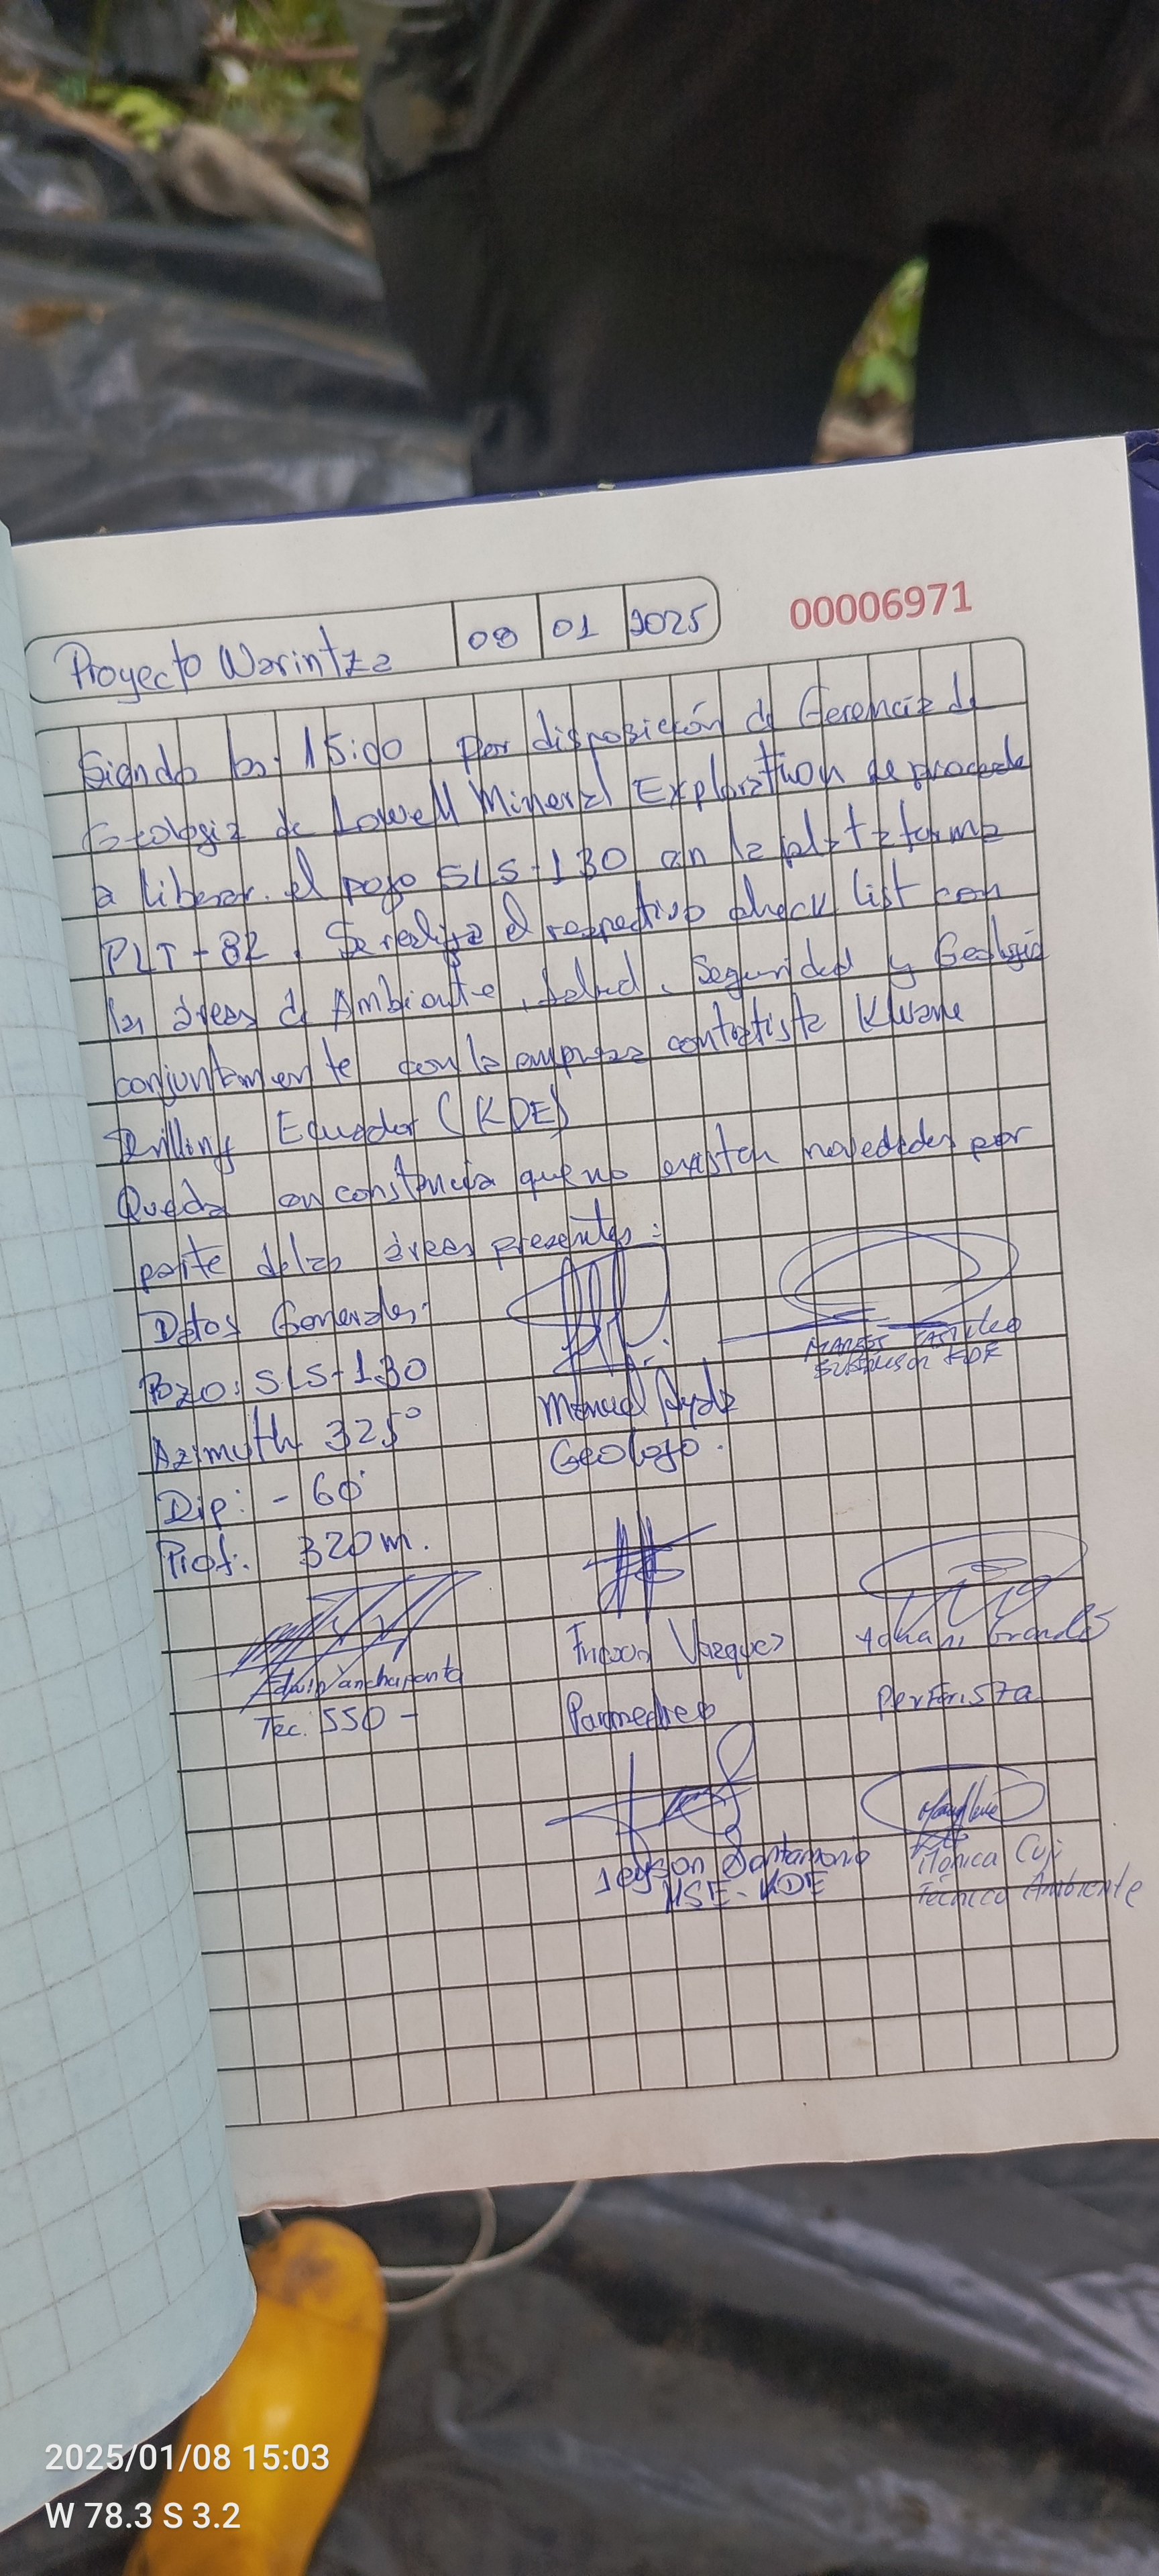 00006971
Proyecto Warintza 08 01 2025
Siendo las 15:00 por disposición de Gerencia de
Geologia de Lowell Mineral Exploration se procede
a liberar el pozo SLS-130 en la plataforma
PLT-82. Se realiza el respectivo check list con
las áreas de Ambiente, Salud, Seguridad y Geologia
conjuntamente con la empresa contratista Kluane
Drilling Ecuador (KDE)
Queda en constancia que no existen novedades por
parte de las áreas presentes:
Datos Generales:
Pozo: SLS-130
Azimuth 325°
Dip: -60°
Prof: 320m.
Manuel Ayala
Geologo.
Castillo
Supervisor KDE
Edwin Yanchapanta
Tec. SSO -
Vazquez
Paramedico
Perforista
Jeyson Santamaria
HSE-KDE
Monica Cuji
Técnica Ambiente
2025/01/08 15:03
W 78.3 S 3.2